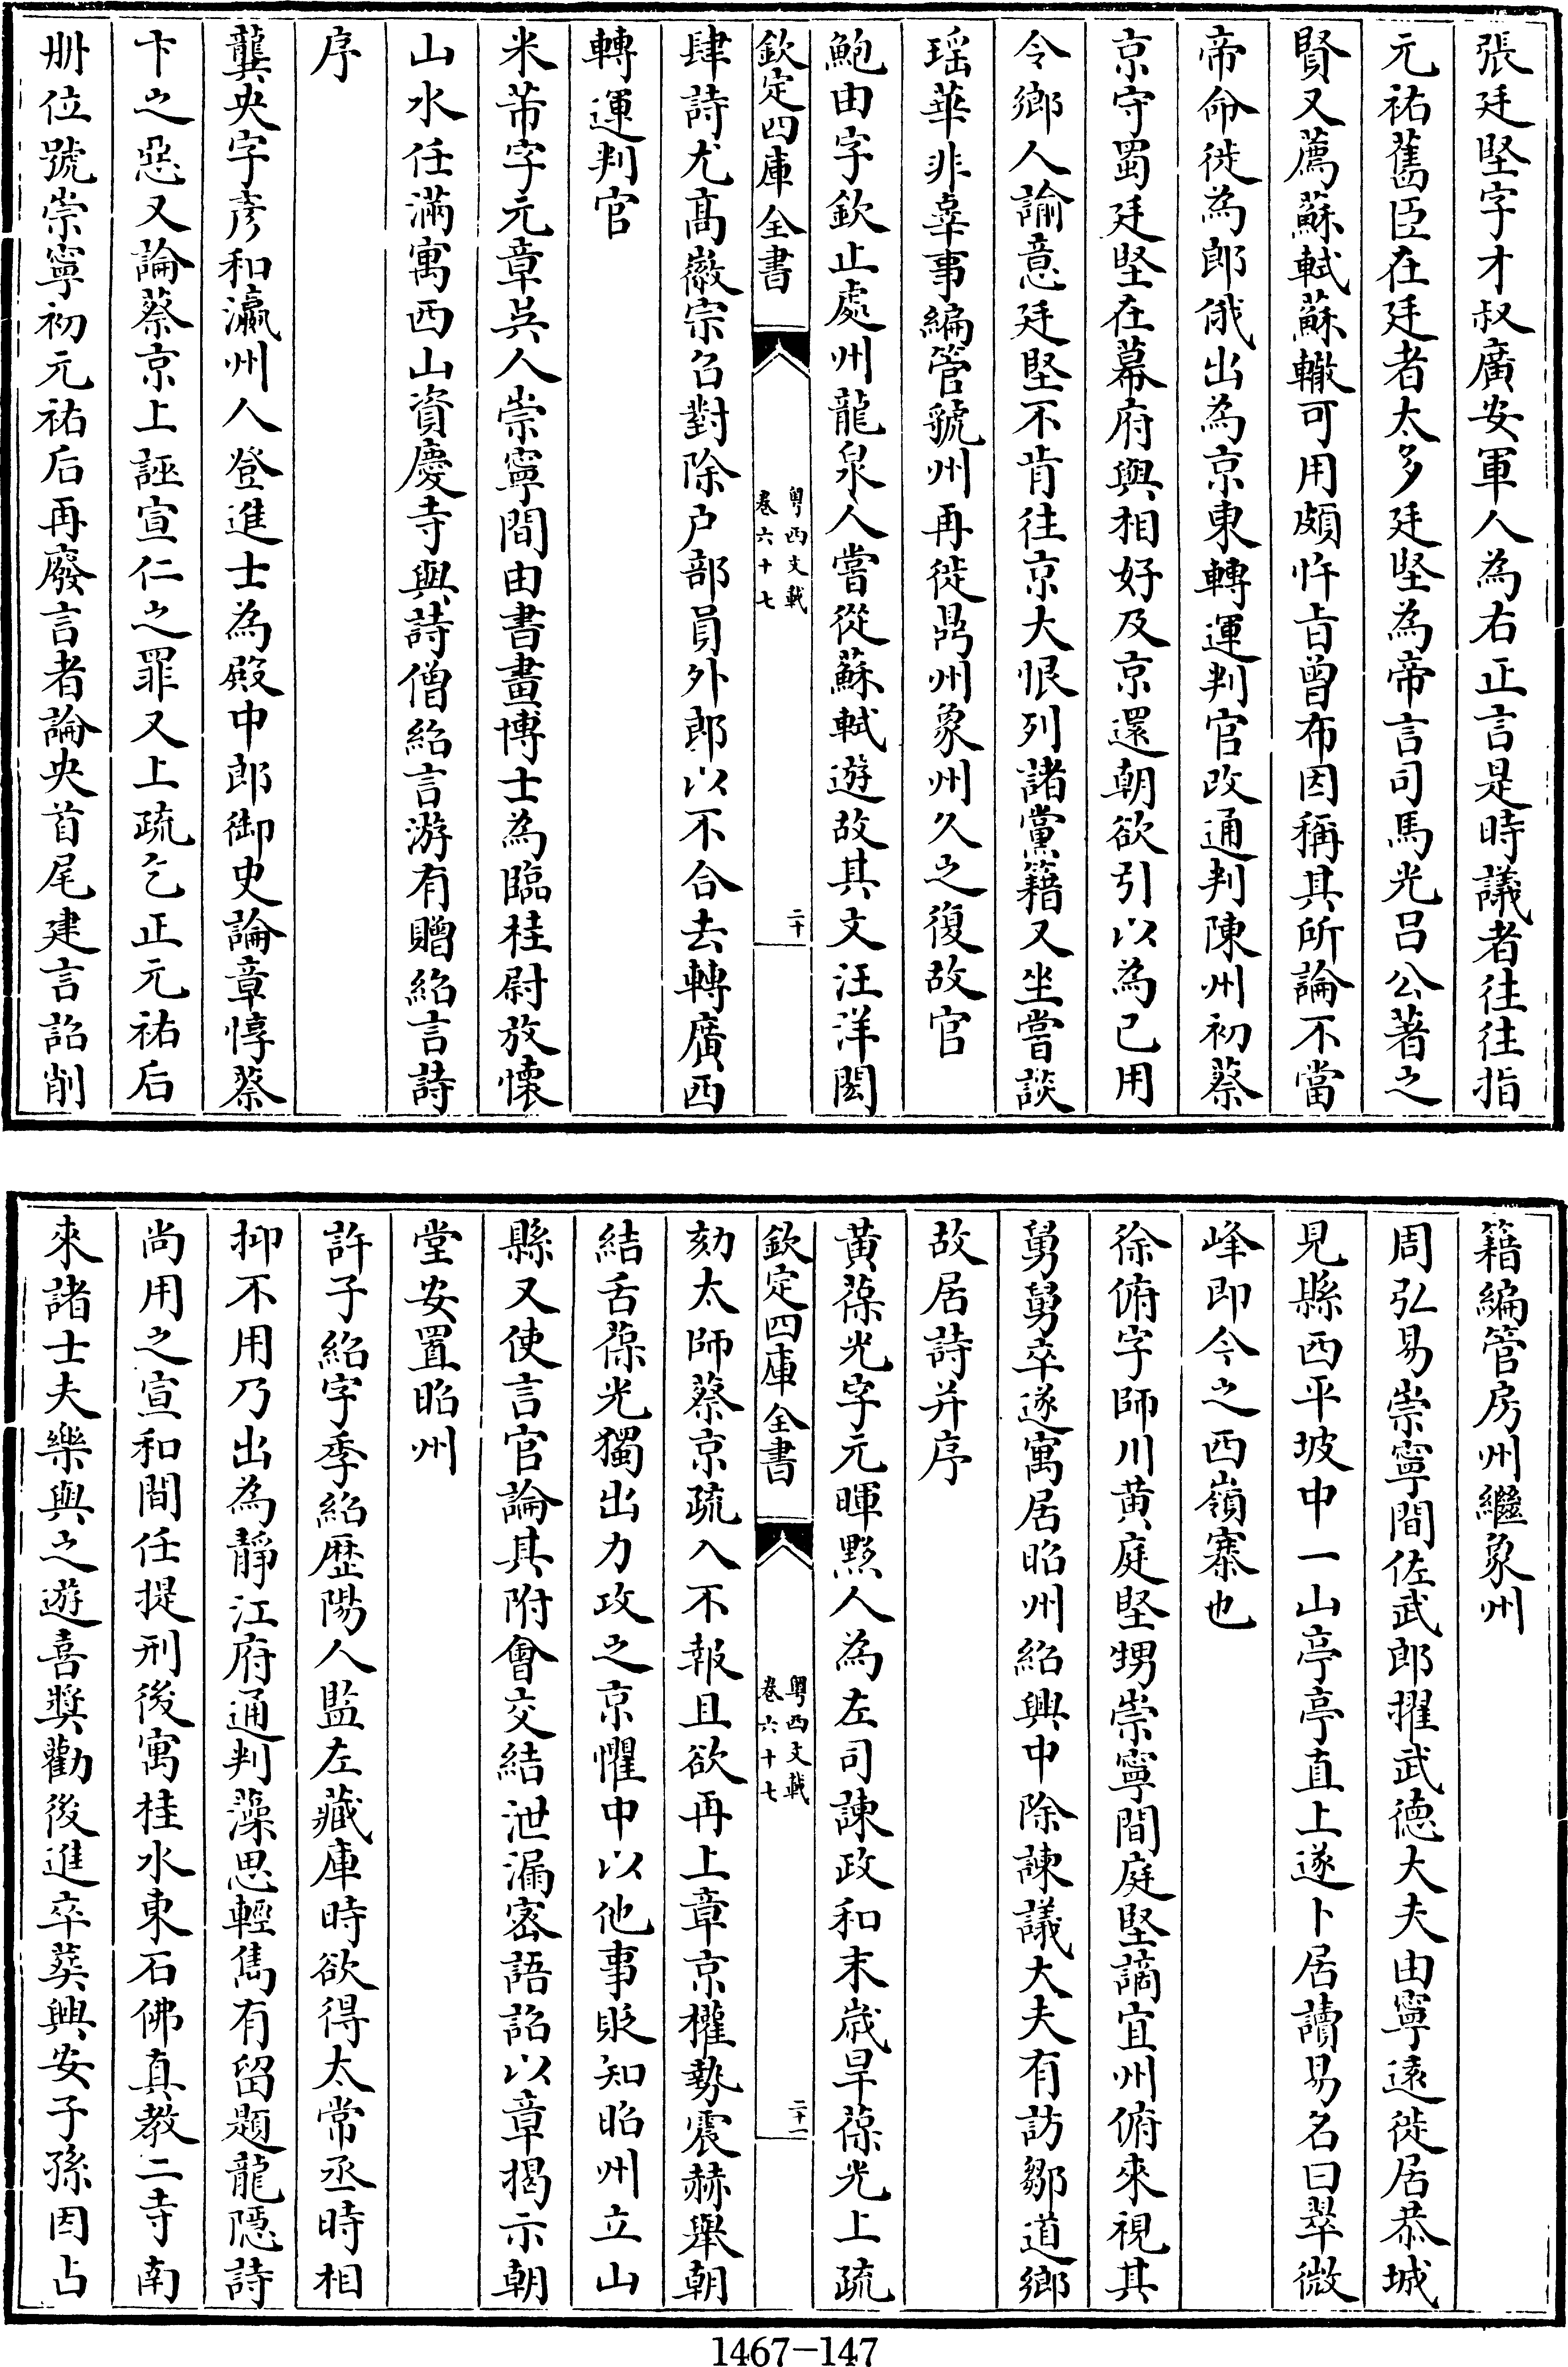 張廷堅字才叔廣安軍人為右正言是時議者往往指
元祐舊臣在廷者太多廷堅為帝言司馬光呂公著之
賢又薦蘇軾蘇轍可用頗忤旨曾布因稱其所論不當
帝命徙為郎俄出為京東轉運判官改通判陳州初蔡
京守蜀廷堅在幕府與相好及京還朝欲引以為己用
令鄉人諭意廷堅不肯往京大恨列諸黨籍又坐嘗談
瑶華非辜事編管虢州再徙鼎州象州久之復故官
鮑由字欽止處州龍泉人嘗從蘇軾遊故其文汪洋閎
欽定四庫全書
粤西文載
卷六十七
二十
肆詩尤髙徽宗召對除户部員外郎以不合去轉廣西
轉運判官
米芾字元章吳人崇寧間由書畫博士為臨桂尉放懷
山水任滿寓西山資慶寺與詩僧紹言游有贈紹言詩
序
龔夬字彦和瀛州人登進士為殿中郎御史論章惇蔡
卞之惡又論蔡京上誣宣仁之罪又上疏乞正元祐后
冊位號崇寧初元祐后再廢言者論夬首尾建言詔削
籍編管房州繼象州
周弘易崇寧間佐武郎擢武德大夫由寧遠徙居恭城
見縣西平坡中一山亭亭直上遂卜居讀易名曰翠微
峰即今之西嶺寨也
徐俯字師川黄庭堅甥崇寧間庭堅謫宜州俯來視其
舅舅卒遂寓居昭州紹興中除諫議大夫有訪鄒道鄉
故居詩并序
黄葆光字元暉黟人為左司諫政和末歲旱葆光上疏
欽定四庫全書
粤西文載
卷六十七
二十一
劾太師蔡京疏入不報且欲再上章京權勢震赫舉朝
結舌葆光獨出力攻之京懼中以他事貶知昭州立山
縣又使言官論其附會交結泄漏宻語詔以章揭示朝
堂安置昭州
許子紹字季紹歷陽人監左藏庫時欲得太常丞時相
抑不用乃出為靜江府通判藻思輕雋有留題龍隱詩
尚用之宣和間任提刑後寓桂水東石佛真教二寺南
來諸士夫樂與之遊喜奬勸後進卒葬興安子孫因占
1467-147